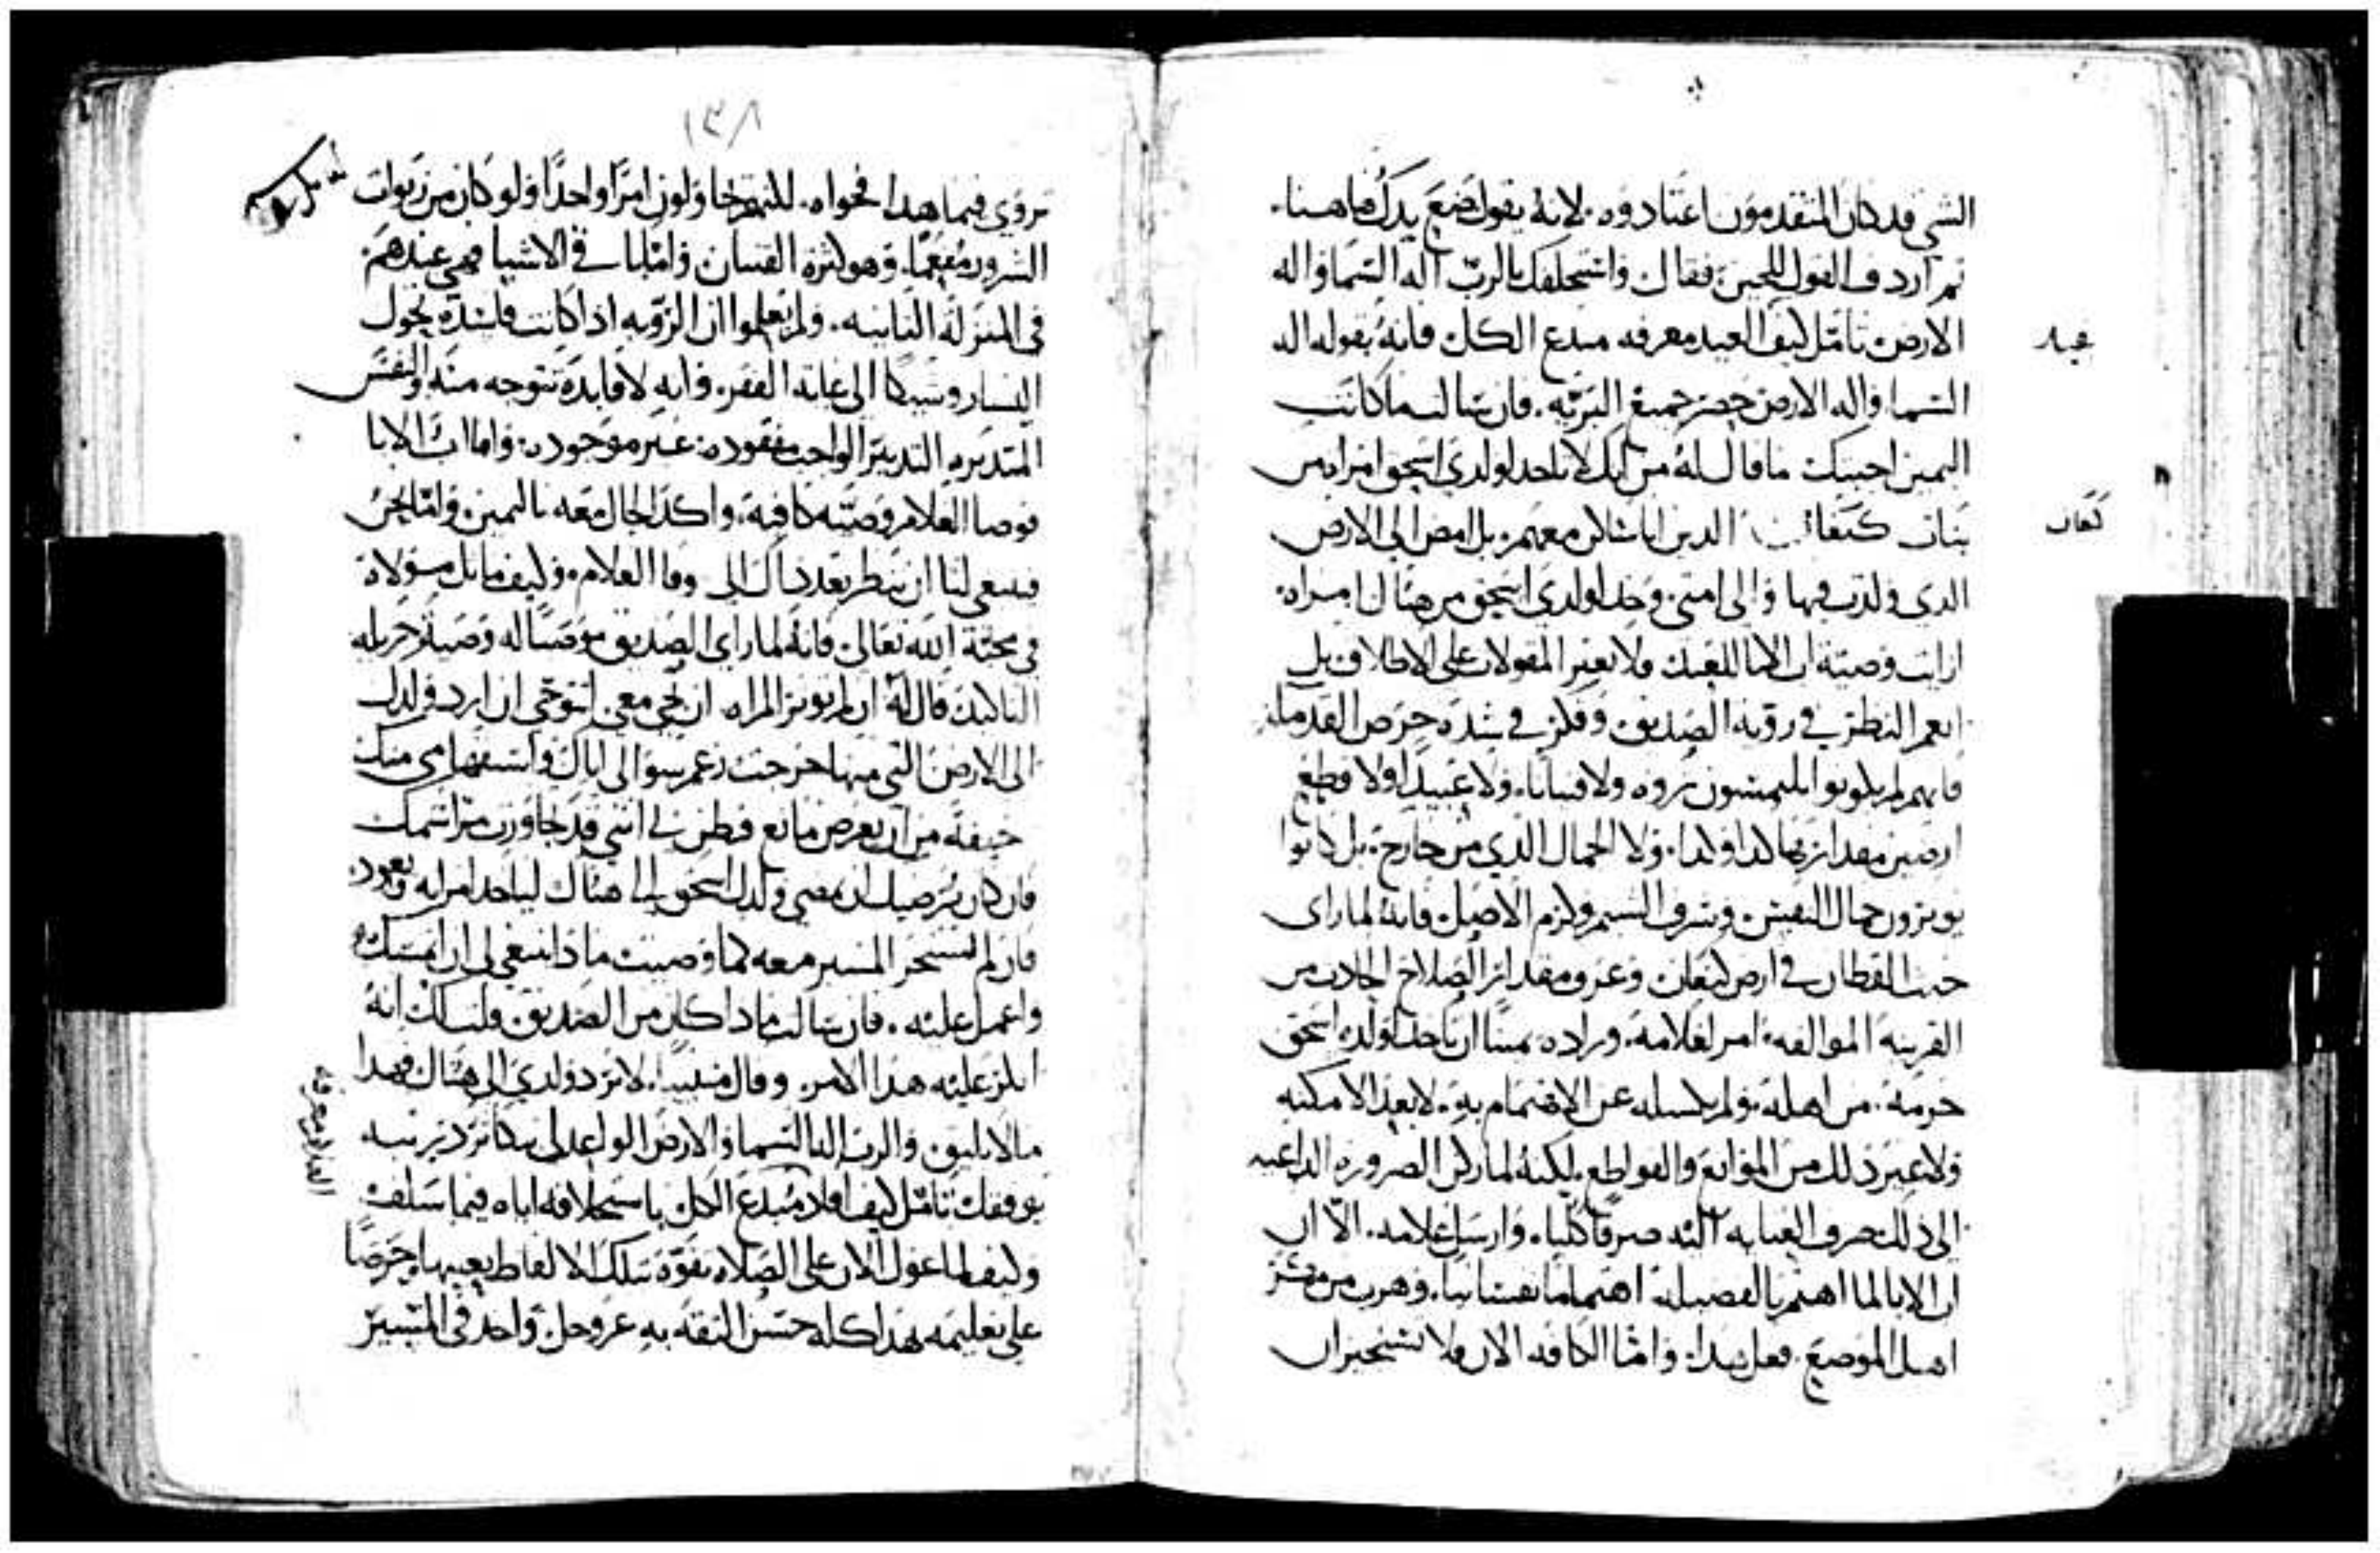 الشي قد كان المتقدمون اعتادوه. لانه يقول ضع يدك هاهنا.
تم اردف القول للحين فقال واستحلفك بالرب اله السما واله
الارض تامل كيف العبد معرفه مبدع الكل فانه بقوله اله
السما واله الارض حصر جميع البريه. فان سالت ما كانت
اليمين اجبتك ما قال له من انك لا تاخد لولدي اسحق امراه من
بنات كنعان الدين انا ساكن معهم. بل امض الى الارض
الدي ولدت فيها والى امتي. وخد لولدي اسحق من هناك امراه.
ارايت وصية اب الابا للعبد فلا تعبر المقولات على الاطلاق بل
انعم النظر في روية الصديق وفكر في شده حرص القدما
فانهم لم يكونوا يلتمسون تروه ولا قسانا. ولا عبيدا ولا قطع
ارضين مقدارها كدا وكدا. ولا الجمال الدي من خارج. بل كانوا
يوترون جمال النفس وشرف الشيم وكرم الاصل فانه لما راى
خبث القطان في ارض كنعان وعرف مقدار الصلاح الحادت من
القرينه الموالفه. امر لغلامه. وزاده يمينا ان ياخد لولده اسحق
حرمة من اهله. ولم يكسله عن الاهتمام به. لا بعد الامكنه
ولا غير دلك من الموانع والقواطع. لكنه لما راى الضروره الداعيه
الى دلك صرف العنايه اليه صرفا كليا. وارسل غلامه. الا ان
اب الابا لما اهتم بالفضيله اهتماما نفسانيا. وهرب من شر
اهل الموضع. فعل هدا. واما الكافه الان فلا يستخيران
عبد
كنعان
١٣٨
تروي فيما هدا فحواه. لكنهم يحاولون امرا واحدا ولو كان من ربوات
الشرور مفعما. وهو كثره القسان واما باقي الاشيا فهي عندهم.
في المنزلة التانيه. ولم يعلموا ان الرويه ادا كانت فاسده يحول
اليسار وشيكا الى غاية الفقر. وانه لا فايده تتوجه منه والنفس
المتدبره التدبير الواجب مفقوده. غير موجوده. واما اب الابا
فوصا الغلام وصيه كافيه. واكد الحال معه باليمين. واما نحن
فينبغي لنا ان ننظر بعد داك الى وفا الغلام. وكيف ماتل مولاه
في محبة الله تعالى فانه لما راى الصديق موصيا له وصية جزيله
التاكيد قال له ان لم توتر المراه ان تجي معي اتوخى ان ارد ولدك
الى الارض التي منها خرجت زعم سوالي اياك واستفهامي منك
خيفة من ان يعرض مانع فيظن بي انني قد تجاوزت مراسمك
فان كان يرضيك ان يمضي ولدك اسحق الى هناك لياخد امراه ويعود.
فان لم تستخر المسير معه كما وصيت ما دا ينبغي لي ان امتتل
واعمل عليه. فان سالت ما دا كان من الصديق قلت لك انه
انكر عليه هدا الامر. وقال مسببا. لا ترد ولدي الى هناك فهدا
ما لا يليق والرب اله السما والارض الواعد لي بتكاتر دريتي
يوفقك تامل كيف افاد مبدع الكل باستحلافه اياه فيما سلف
وكيف لما عول الان على الصلاه بقوة تلك الالفاظ بعينها. وحرصا
على تعليمه بهدا كله حسن التقه به عز وجل. واخد في المسير
الغلام معرفه